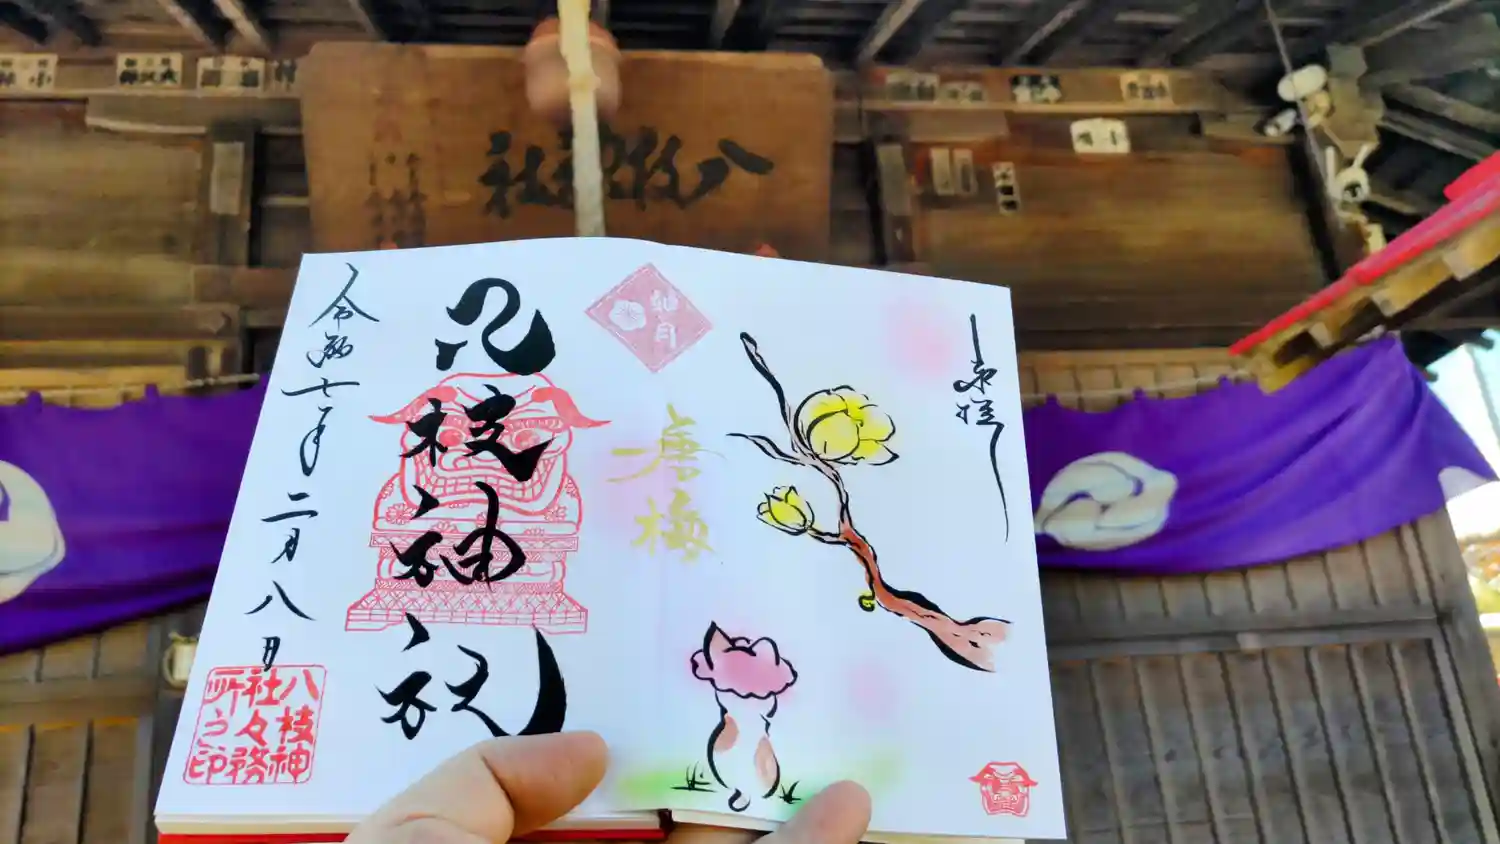 八枚神社
奉拝
唐梅
如月
八枝神社
令和七年
二月八日
八枝神
社々務
所之印